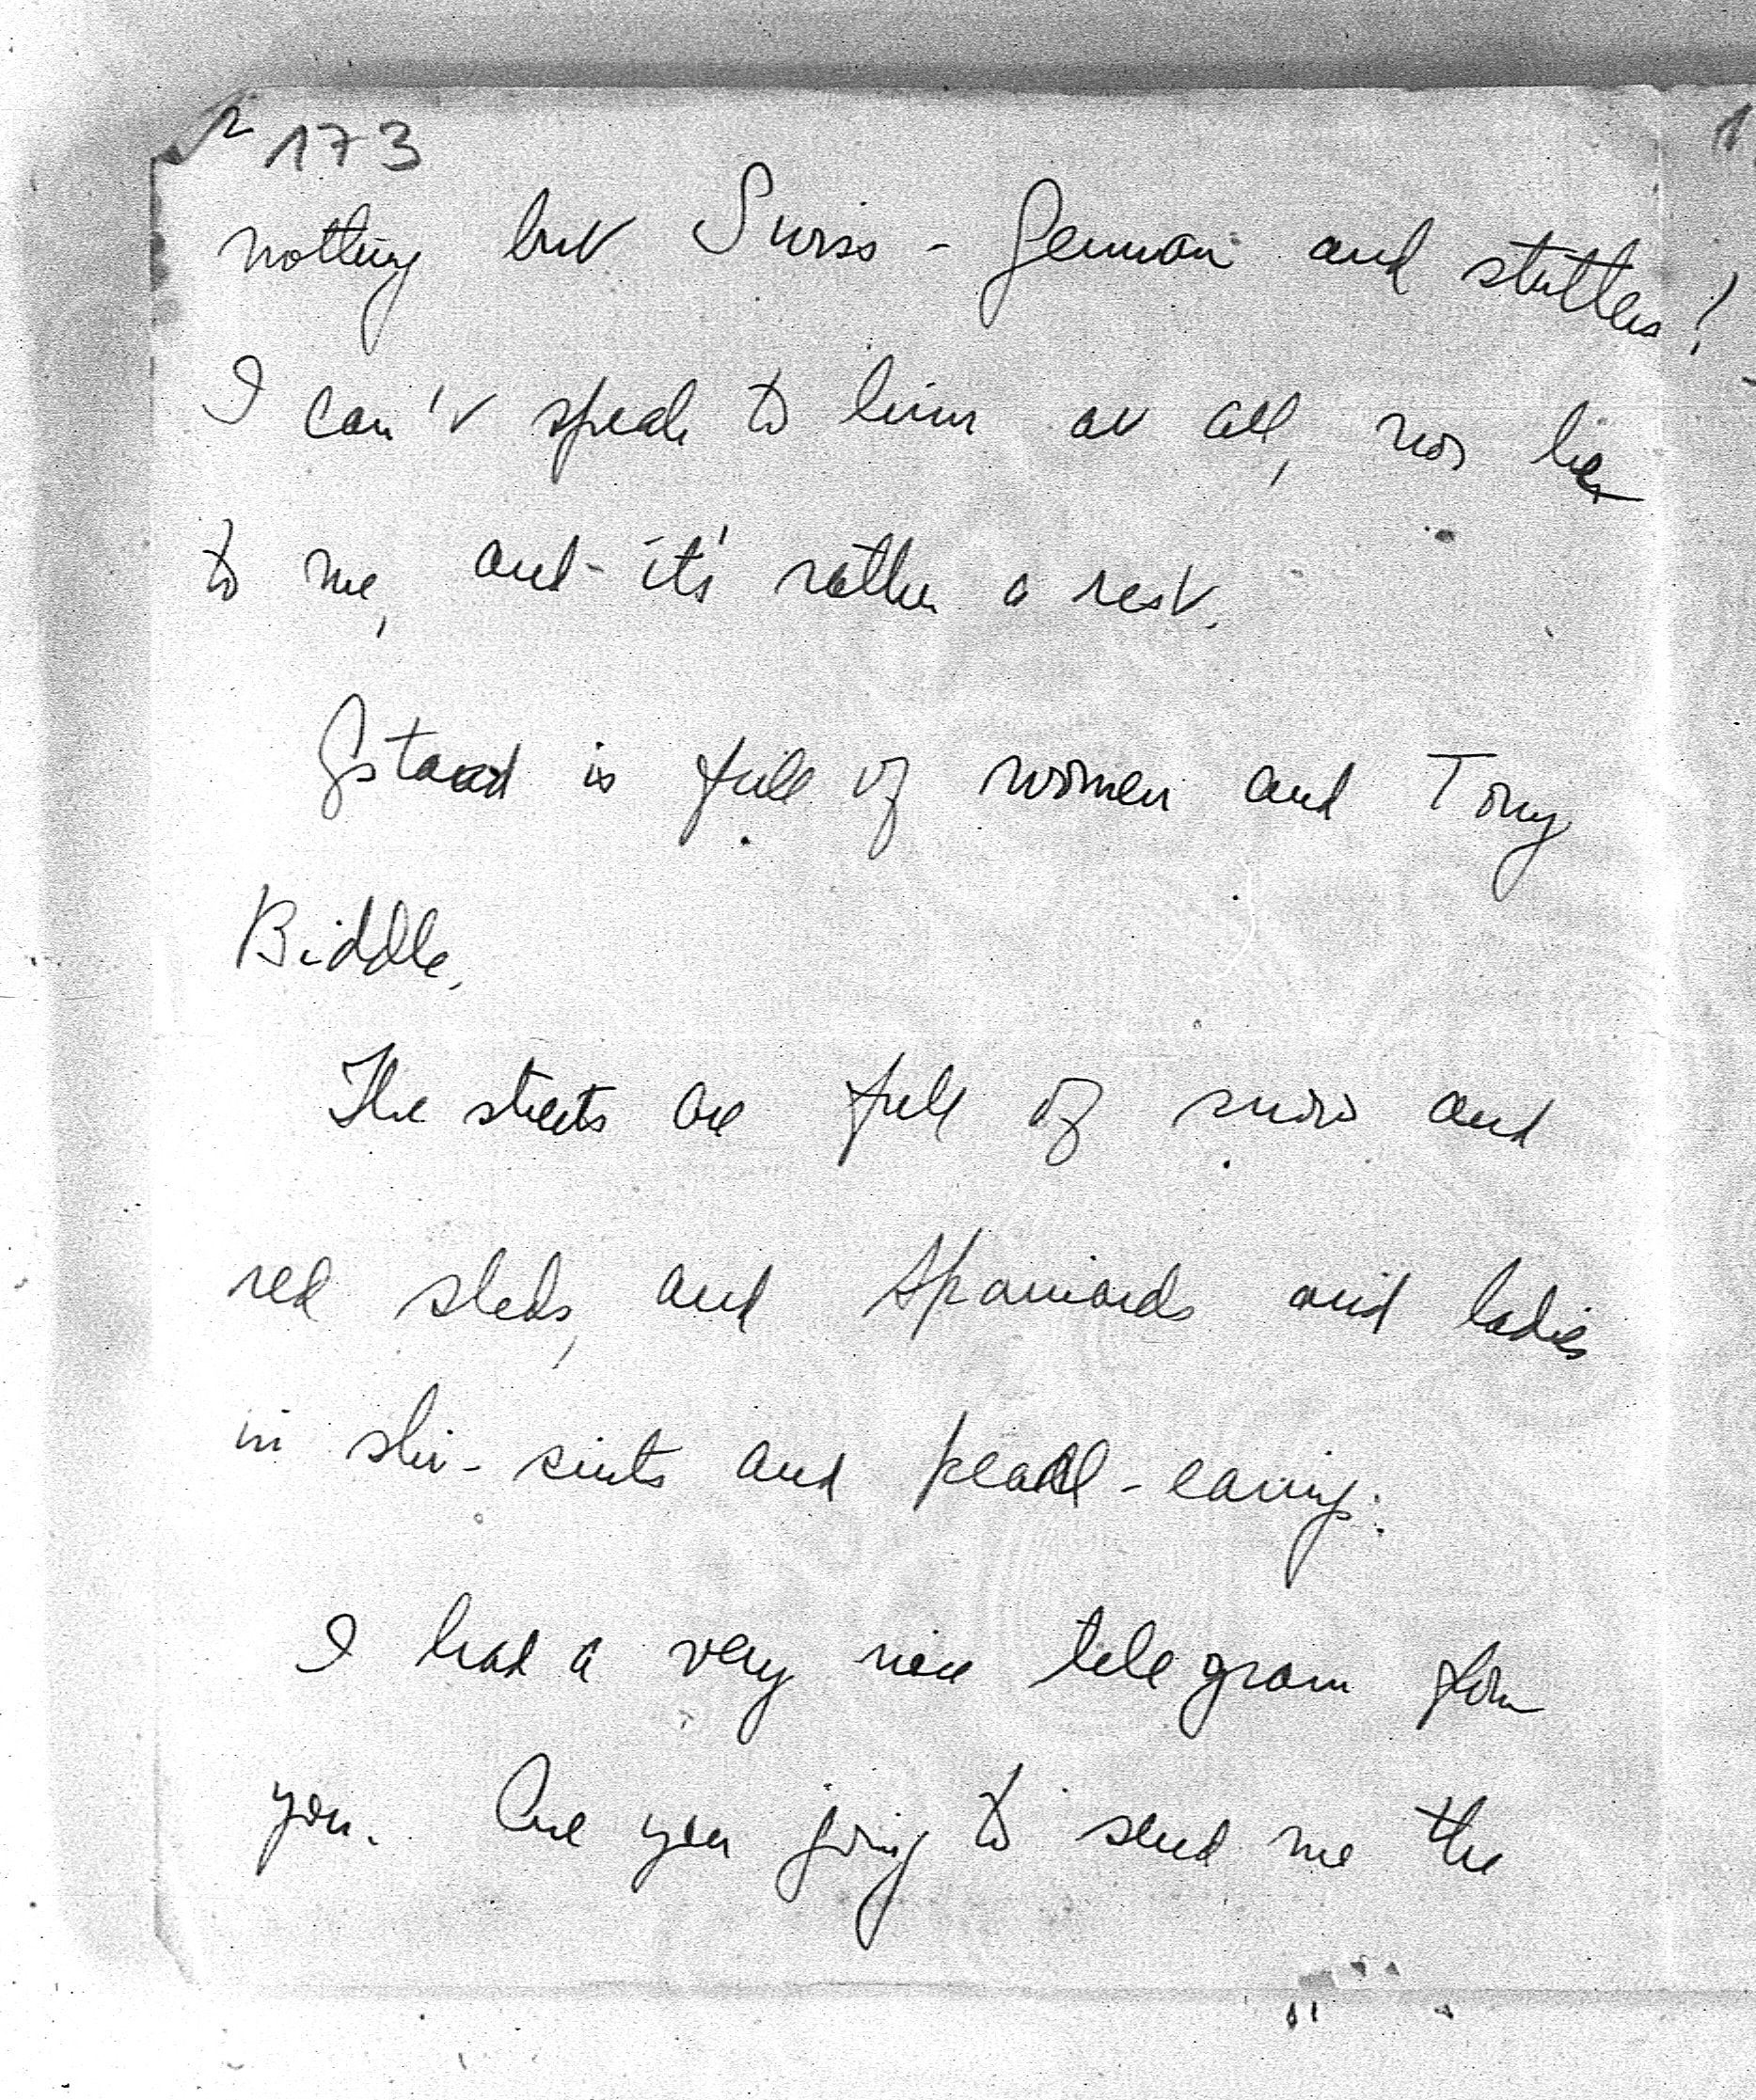 173
nothing but Swiss-German and stutters!
I can't speak to him at all, nor he
to me, and it's rather a rest.
Gstaad is full of women and Tony
Biddle.
The streets are full of snow and
red sleds, and Spaniards and ladies
in ski-suits and pearl-earrings.
I had a very nice telegram from
you. Are you going to send me the